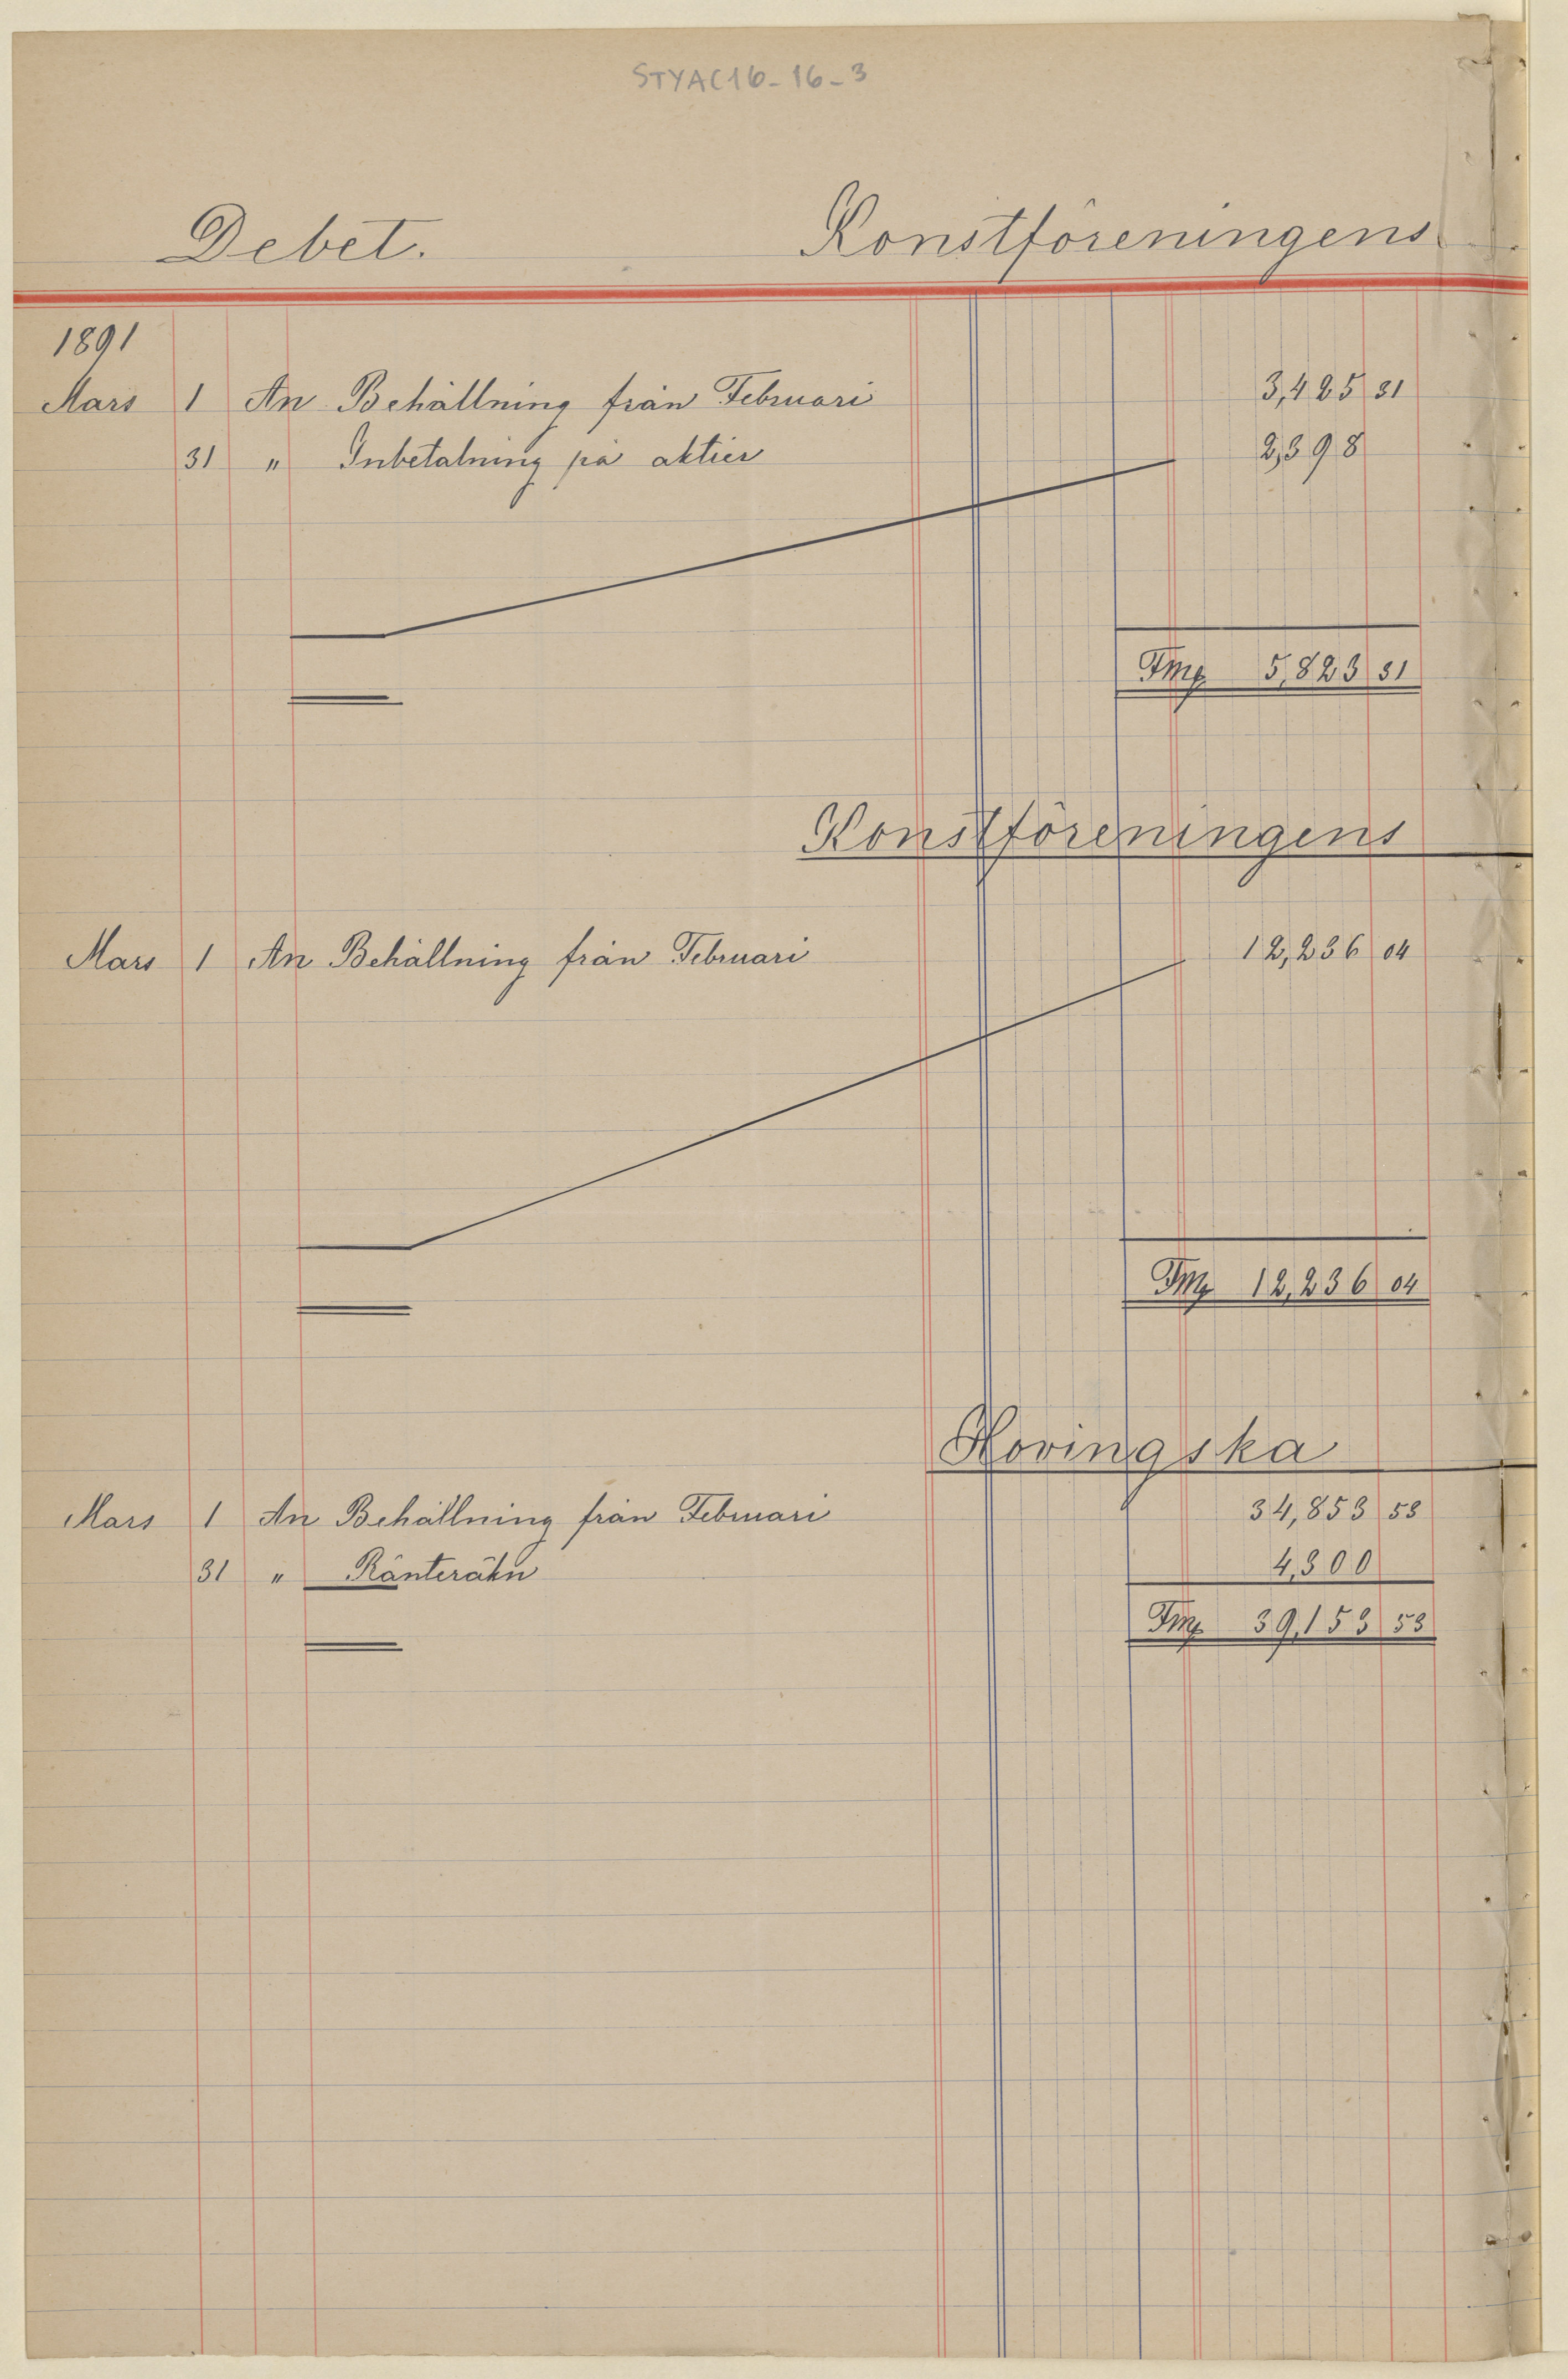 STYAC16-16-3
Debet. Konstföreningens
1891
Mars 1 An Behållning från Februari 3,425 31
31 " Inbetalning på aktier 2,398
Fmg 5,823 31
Konstföreningens
Mars 1 An Behållning från Februari 12,236 04
Fmg 12,236 04
Hovingska
Mars 1 An Behållning från Februari 34,853 53
31 " Ränteräkn 4,300
Fmg 39,153 53